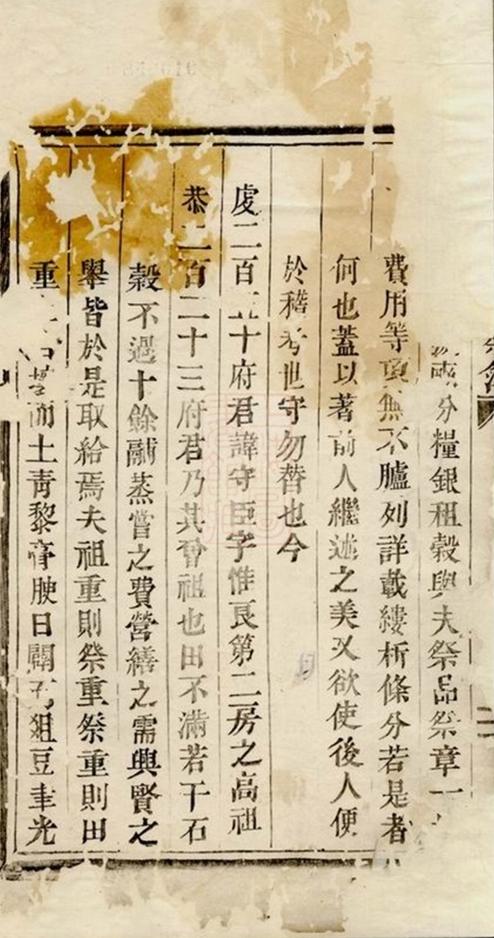 分糧銀租穀與夫祭品祭章一
費用等項無不臚列詳載縷析條分若是者
何也蓋以著前人繼述之美又欲使後人便
於稽考世守勿替也今
虔二百二十府君諱守臣字惟良第二房之高祖
恭二百二十三府君乃其曾祖也田不滿若干石
穀不過十餘䉤蒸嘗之費營繕之需興賢之
舉皆於是取給焉夫祖重則祭重祭重則田
重 而土青黎膏腴日闢 俎豆聿光